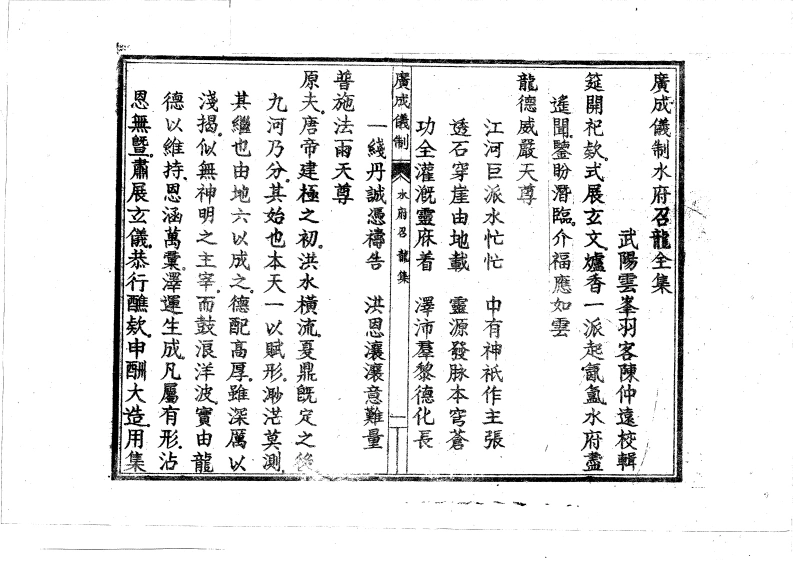 廣成儀制水府召龍全集
武陽雲峯羽客陳仲遠校輯
筵開祀欵式展玄文爐香一派起氤氳水府盡
遙聞鑒盼潛臨介福應如雲
龍德威嚴天尊
江河巨派水忙忙 中有神祇作主張
透石穿崖由地載 靈源發脉本穹蒼
功全灌溉靈庥着 澤沛羣黎德化長
廣成儀制 水府召龍集 一
一綫丹誠憑禱告 洪恩瀼瀼意難量
普施法雨天尊
原夫唐帝建極之初洪水橫流夏鼎旣定之後
九河乃分其始也本天一以賦形渺茫莫測
其繼也由地六以成之德配高厚雖深厲以
淺揭似無神明之主宰而鼓浪洋波實由龍
德以維持恩涵萬彙澤運生成凡屬有形沾
恩無曁肅展玄儀恭行醮欵申酬大造用集